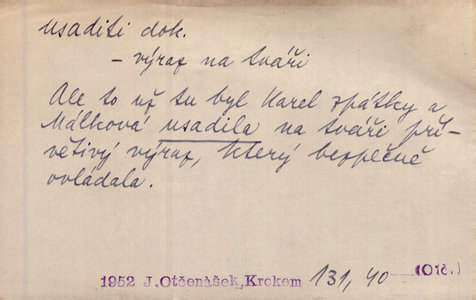 usaditi dok.
– výraz na tváři
Ale to už tu byl Karel zpátky a
Málková usadila na tváři pří-
větivý výraz, který bezpečně
ovládala.
1952 J.Otčenášek,Krokem 131, 40 (Otč.)